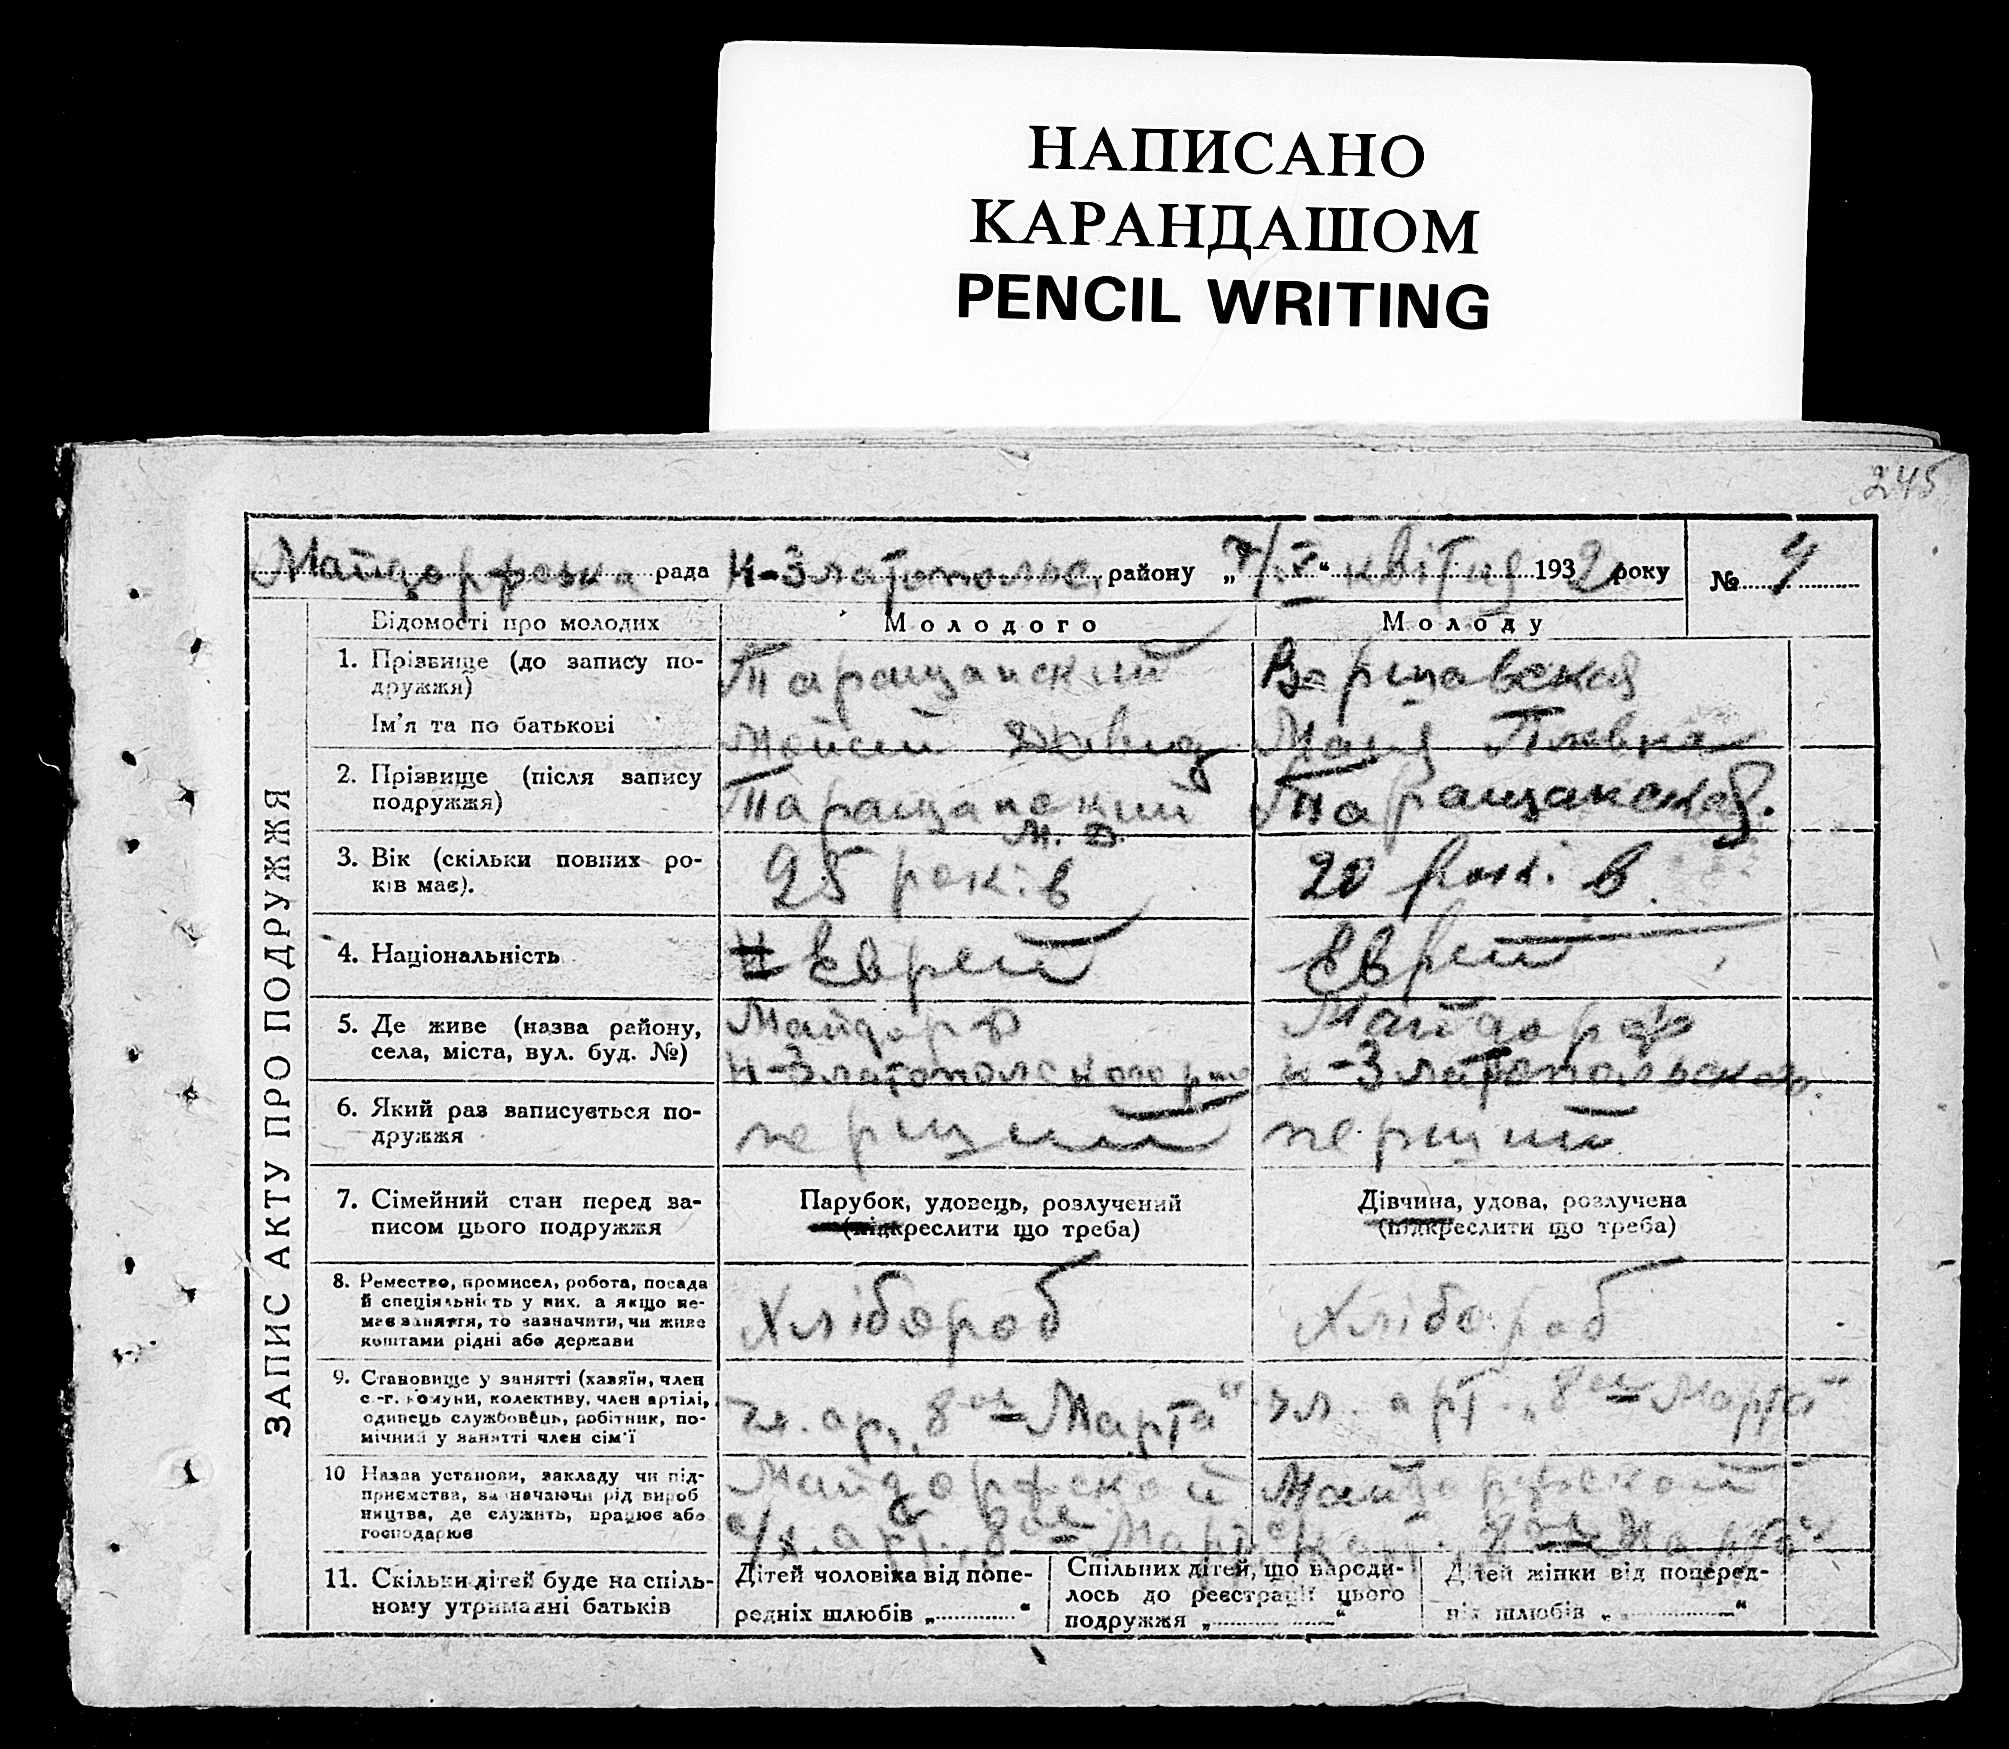 НАПИСАНО
КАРАНДАШОМ
PENCIL WRITING
245
Майдорфська рада Н-Златополь району квітня 1932 року №
ЗАПИС АКТУ ПРО ПОДРУЖЖЯ
Відомості про молодих Молодого Молоду
1. Прізвище (до запису по-
дружжя) Таращанский Варшавская
Ім'я та по батькові Мойсей Давид Маня
2. Прізвище (після запису
подружжя) Таращанский Таращанская.
М. Д.
3. Вік (скільки повних ро-
ків має). 25 років 20 років
4. Національність Еврей Еврей
5. Де живе (назва району, Майдорф Майдорф
села, міста, вул. буд. №) Н-Златопольского р-на Н-Златопольского.
6. Який раз записується по-
дружжя перший перший
7. Сімейний стан перед за- Парубок, удовець, розлучений Дівчина, удова, розлучена
писом цього подружжя (підкреслити що треба) (підкреслити що треба)
8. Ремество, промисел, робота, посада
й спеціяльність у них, а якщо не-
має заняття, то зазначити, чи живе
коштами рідні або держави Хлібороб Хлібороб
9. Становище у занятті (хазяїн, член
с.-г. комуни, колективу, член артілі,
одинець службовець, робітник, по-
мічний у занятті член сім'ї чл. ар. „8ое Марта“ чл. арт. „8ое Марта“
10 Назва установи, закладу чи під- Майдорфской Майдорфской
приємства, зазначаючи рід вироб
ництва, де служить, працює або с/х. арт. „8ое Марта“ арт. „8ое Марта“
господарює
11. Скільки дітей буде на спіль-
ному утриманні батьків
Дітей чоловіка від попе-
редніх шлюбів „ “
Спільних дітей, що народи-
лось до реєстрації цього
подружжя „ “
Дітей жінки від поперед-
ніх шлюбів „ “